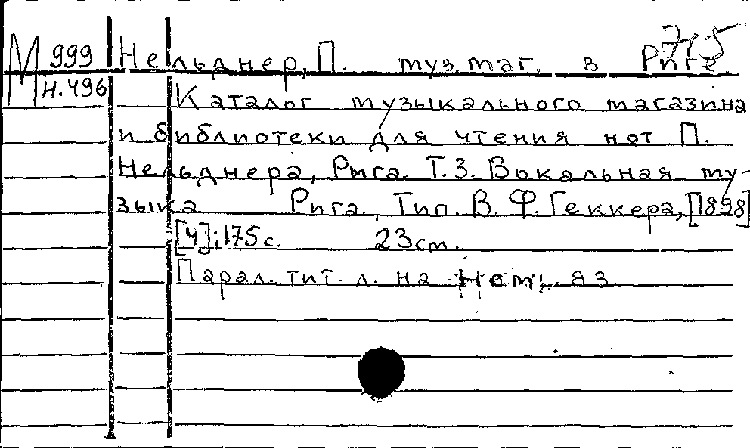 715
М 999 Нельднер, П. муз. маг. в Риге.
Н.496 Каталог музыкального магазина
и библиотеки для чтения нот П.
Нельднера, Рига. Т.3. Вокальная му-
зыка Рига, Тип. В. Ф. Геккера, [1898]
[4]; 175 с. 23 см.
Парал. тит. л. на нем. яз.